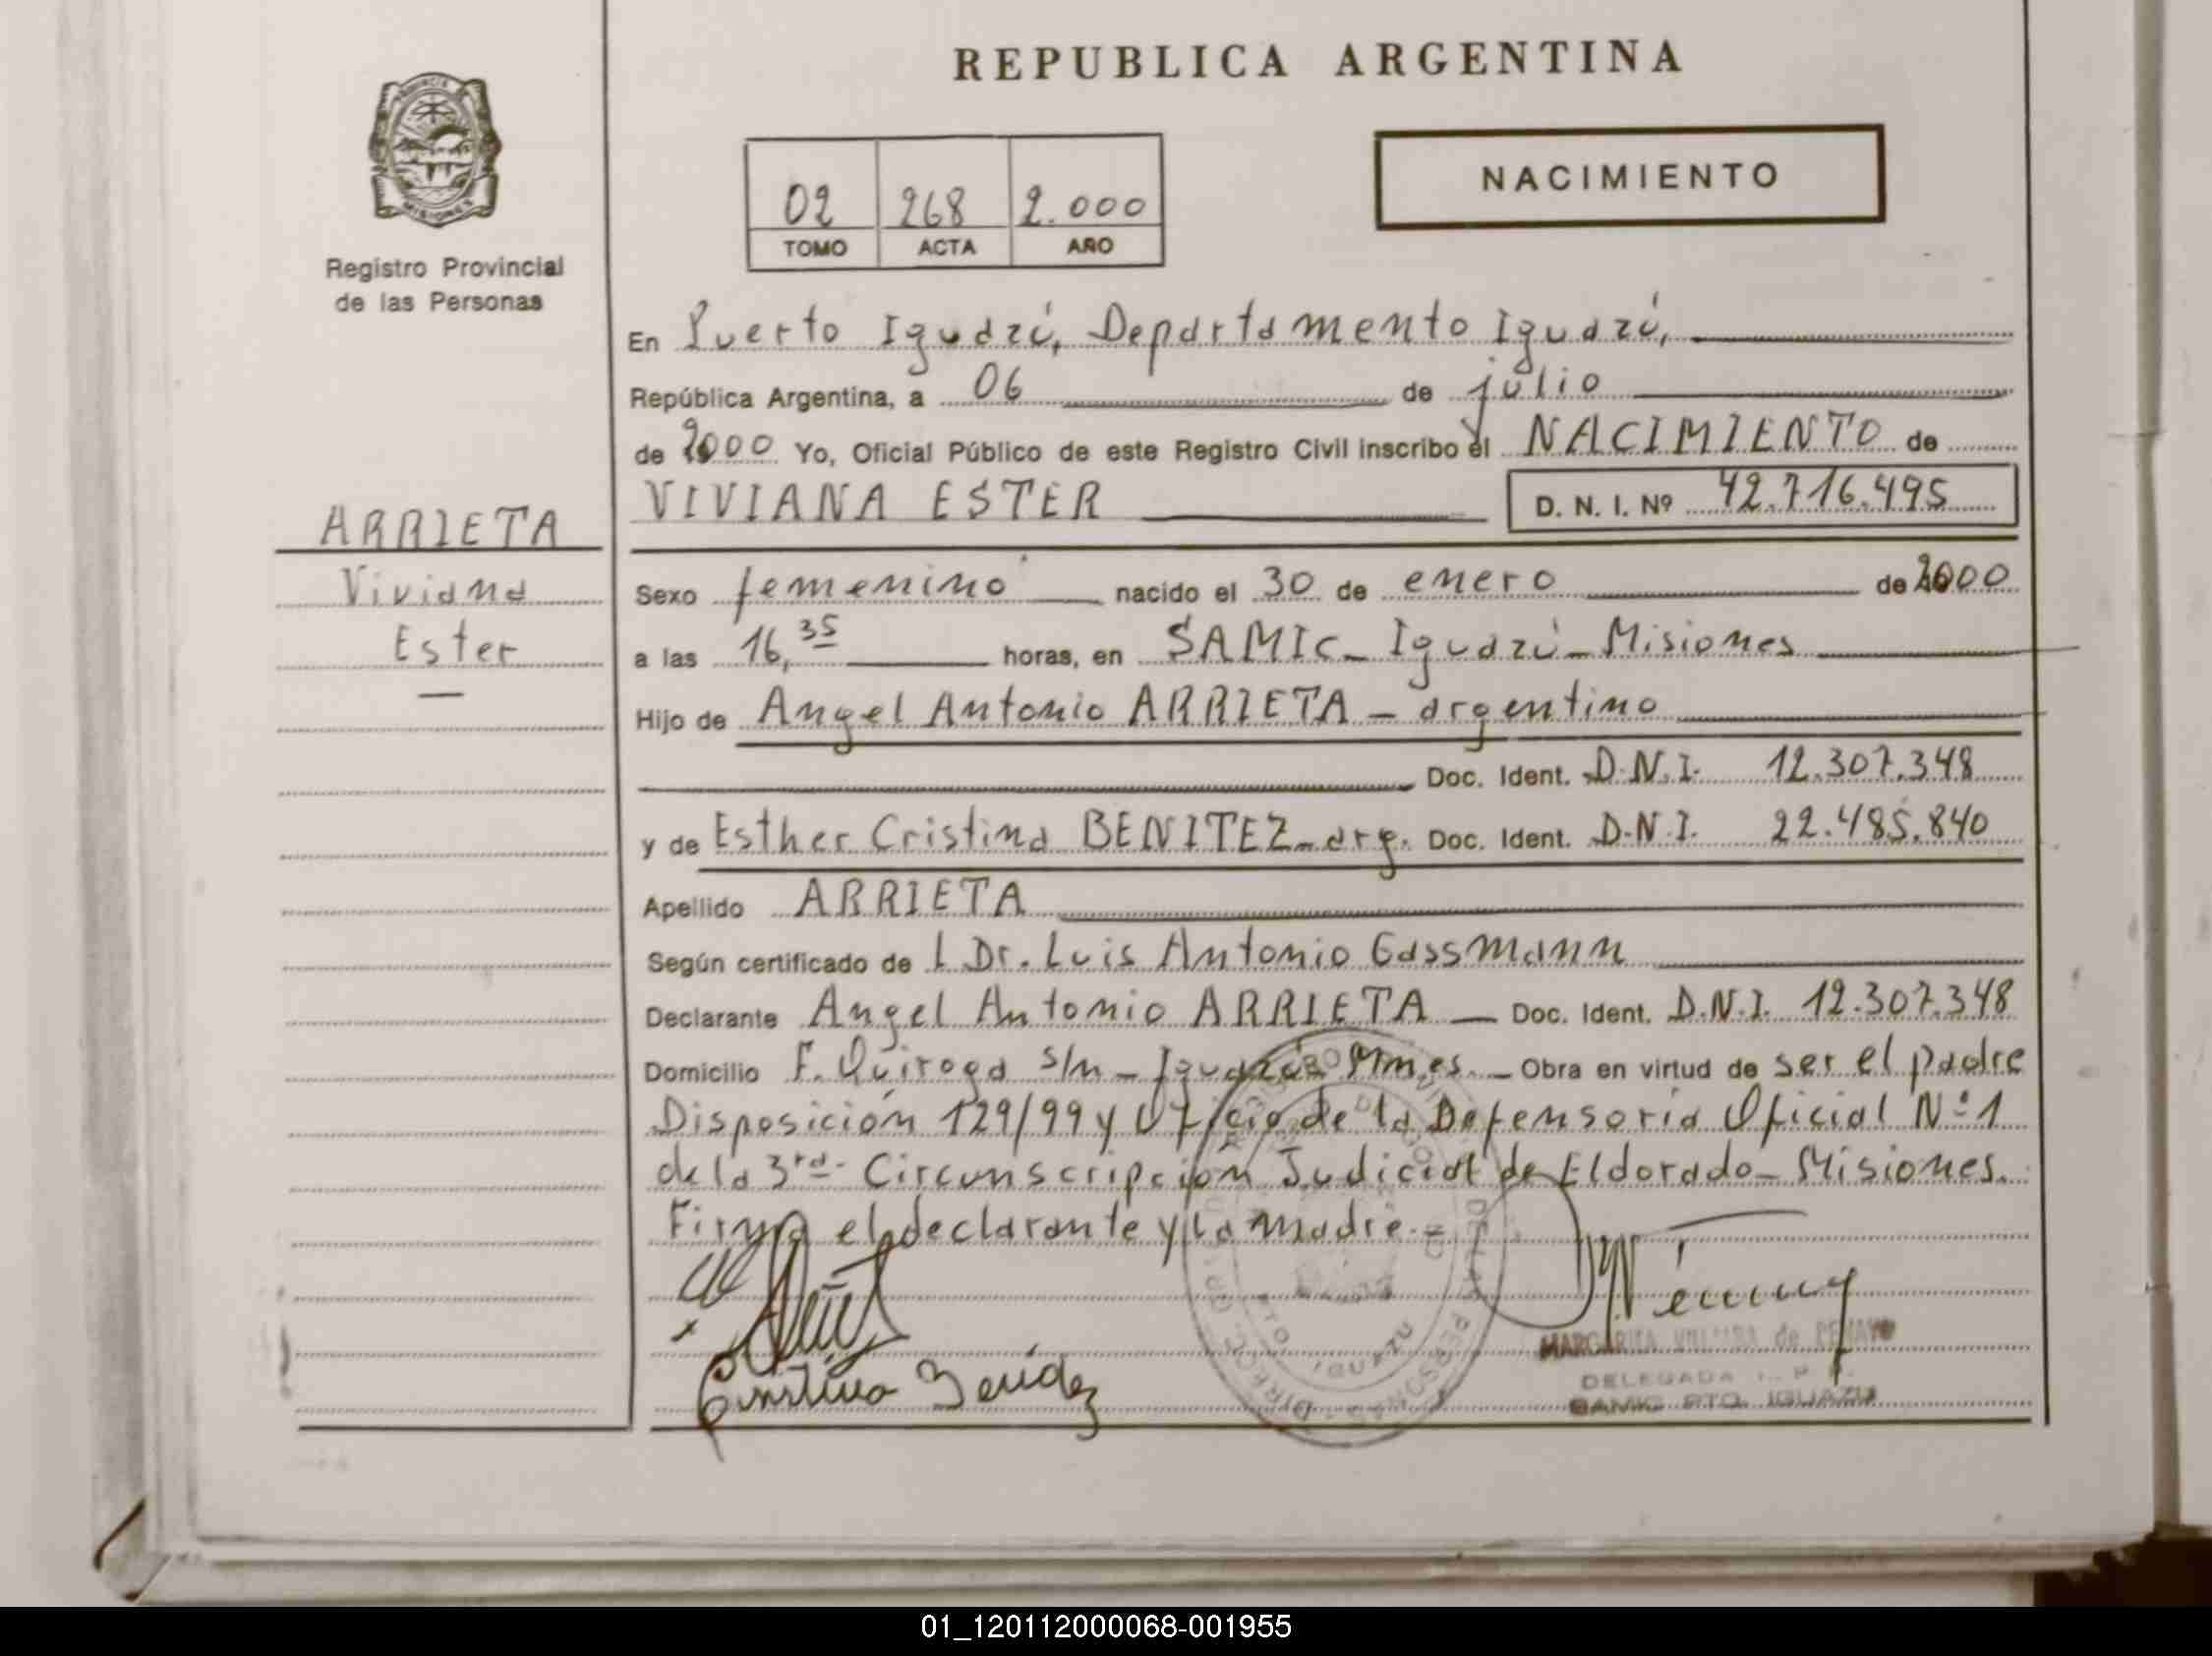 REPUBLICA ARGENTINA
PROVINCIA
MISIONES
Registro Provincial
de las Personas
02 268 2.000
TOMO ACTA AÑO
NACIMIENTO
En Puerto Iguazú, Departamento Iguazú,
República Argentina, a 06 de julio
de 2000 Yo, Oficial Público de este Registro Civil inscribo el NACIMIENTO de
VIVIANA ESTER D. N. I. Nº 42.716.495
ARRIETA
Viviana
Ester
Sexo femenino nacido el 30 de enero de 2000
a las 16,35 horas, en SAMIC_ Iguazú_Misiones
Hijo de Angel Antonio ARRIETA - argentino
Doc. Ident. D.N.I. 12.307.348
y de Esther Cristina BENITEZ_arg. Doc. Ident. D.N.I. 22.485.840
Apellido ARRIETA
Según certificado de l Dr. Luis Antonio Gassmann
Declarante Angel Antonio ARRIETA Doc. Ident. D.N.I. 12.307.348
Domicilio F. Quiroga s/n - Iguazú Mnes. Obra en virtud de ser el padre
Disposición 129/99 y Oficio de la Defensoría Oficial Nº 1
de la 3ra. Circunscripción Judicial de Eldorado_ Misiones.
Firma el declarante y la madre.=
Cristina Benidez
MARGARITA de PENAYO
DELEGADA
SAMIC PTO. IGUAZU
PTO. IGUAZU
01_120112000068-001955